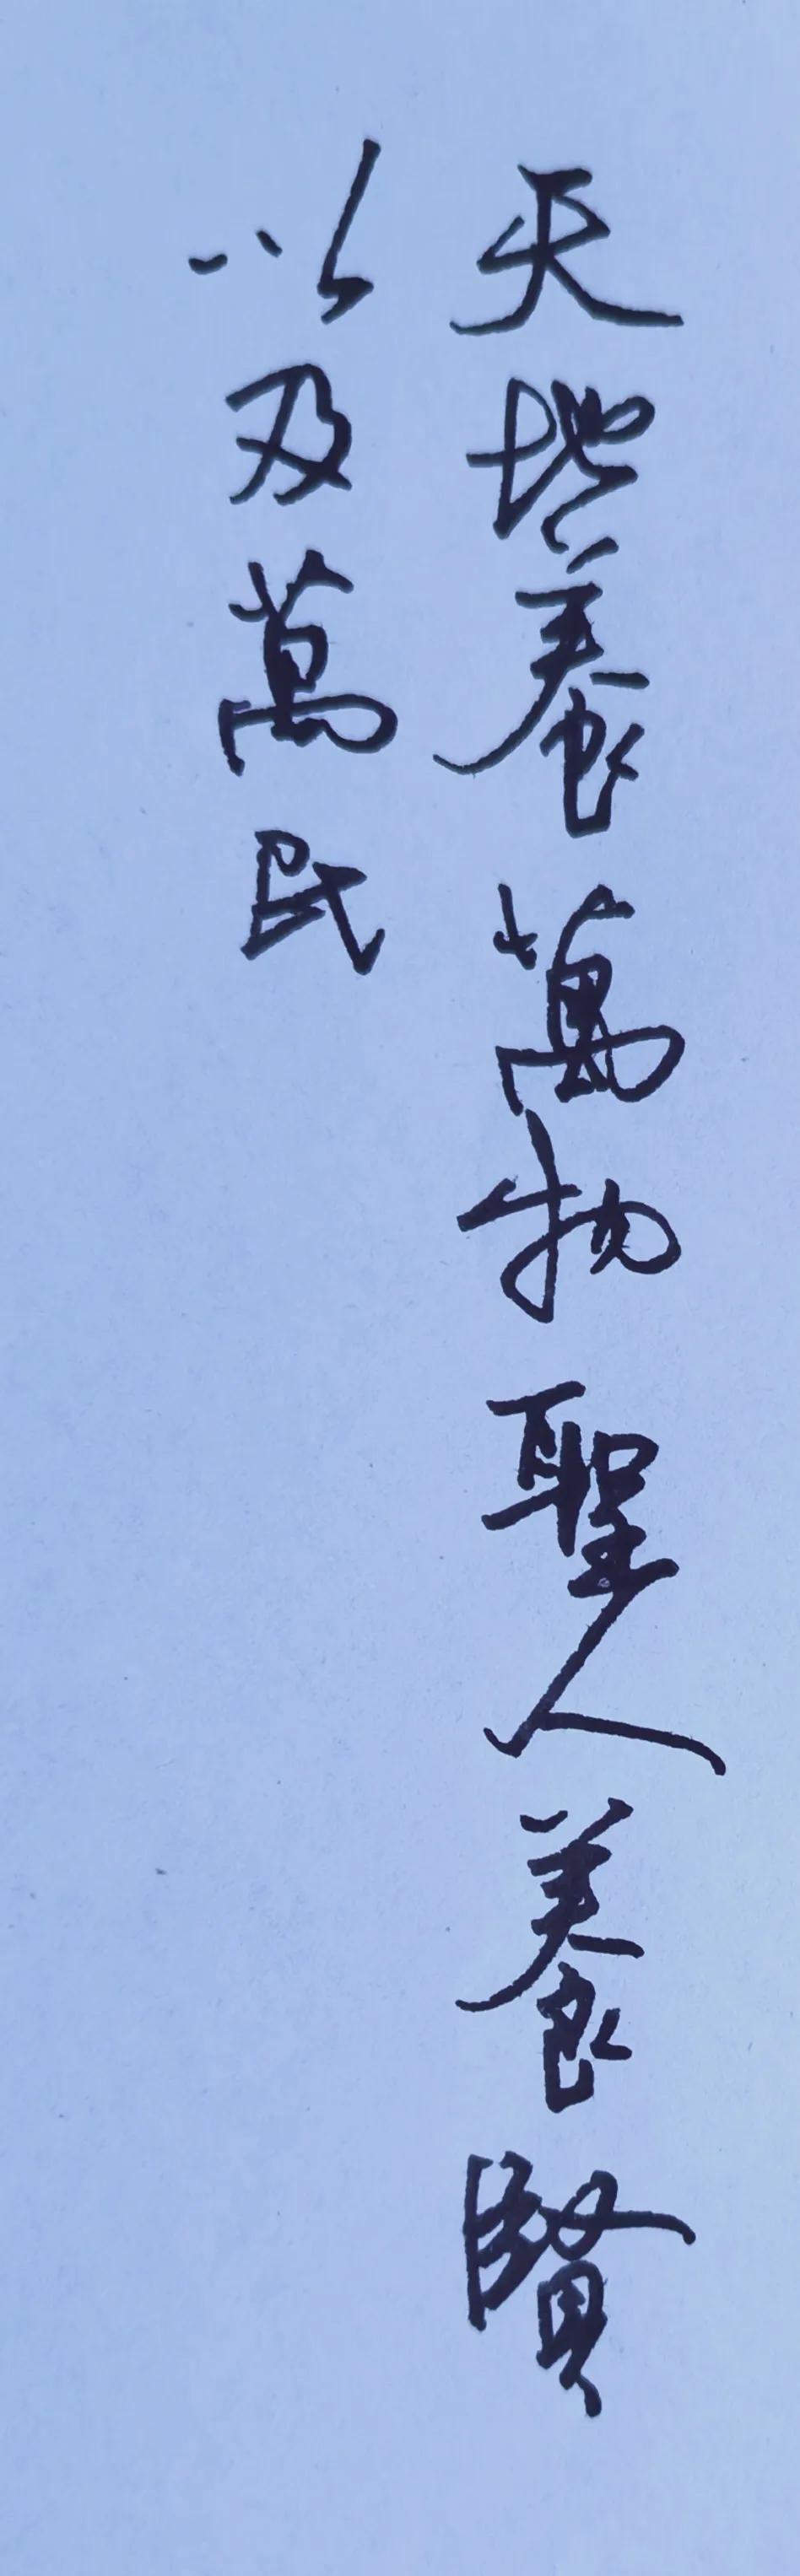 天地養萬物聖人養賢
以及萬民